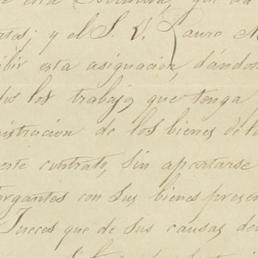 que
y el S. D. Lauro
esta asignacion, dándos
los trabajos que tenga
nistracion de los bienes de la
este contrato, sin apartarse
organtes con sus bienes presen
Jueces que de sus causas de